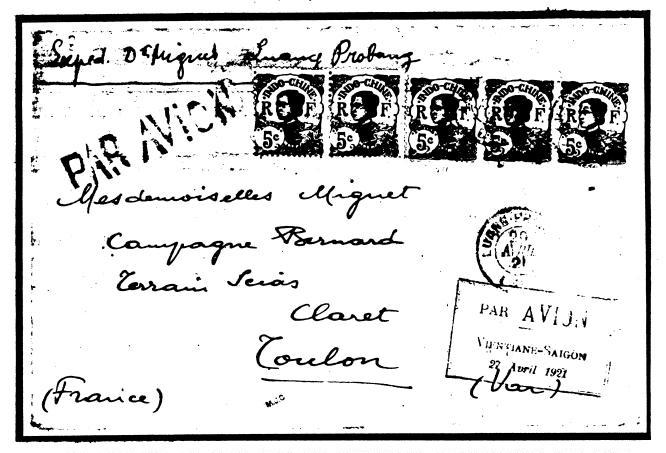 Exped. Dr Mignet Luang Probang
INDO-CHINE INDO-CHINE INDO-CHINE INDO-CHINE INDO-CHINE
R F R F R F R F R F
5c 5c 5c 5c 5c
PAR AVION
Mesdemoiselles Mignet
Campagne Bernard
Terrain
Claret
Toulon
(Var)
(France)
LUANG-PR
AVRIL
21
PAR AVION
VIENTIANE-SAIGON
27 Avril 1921
MJC